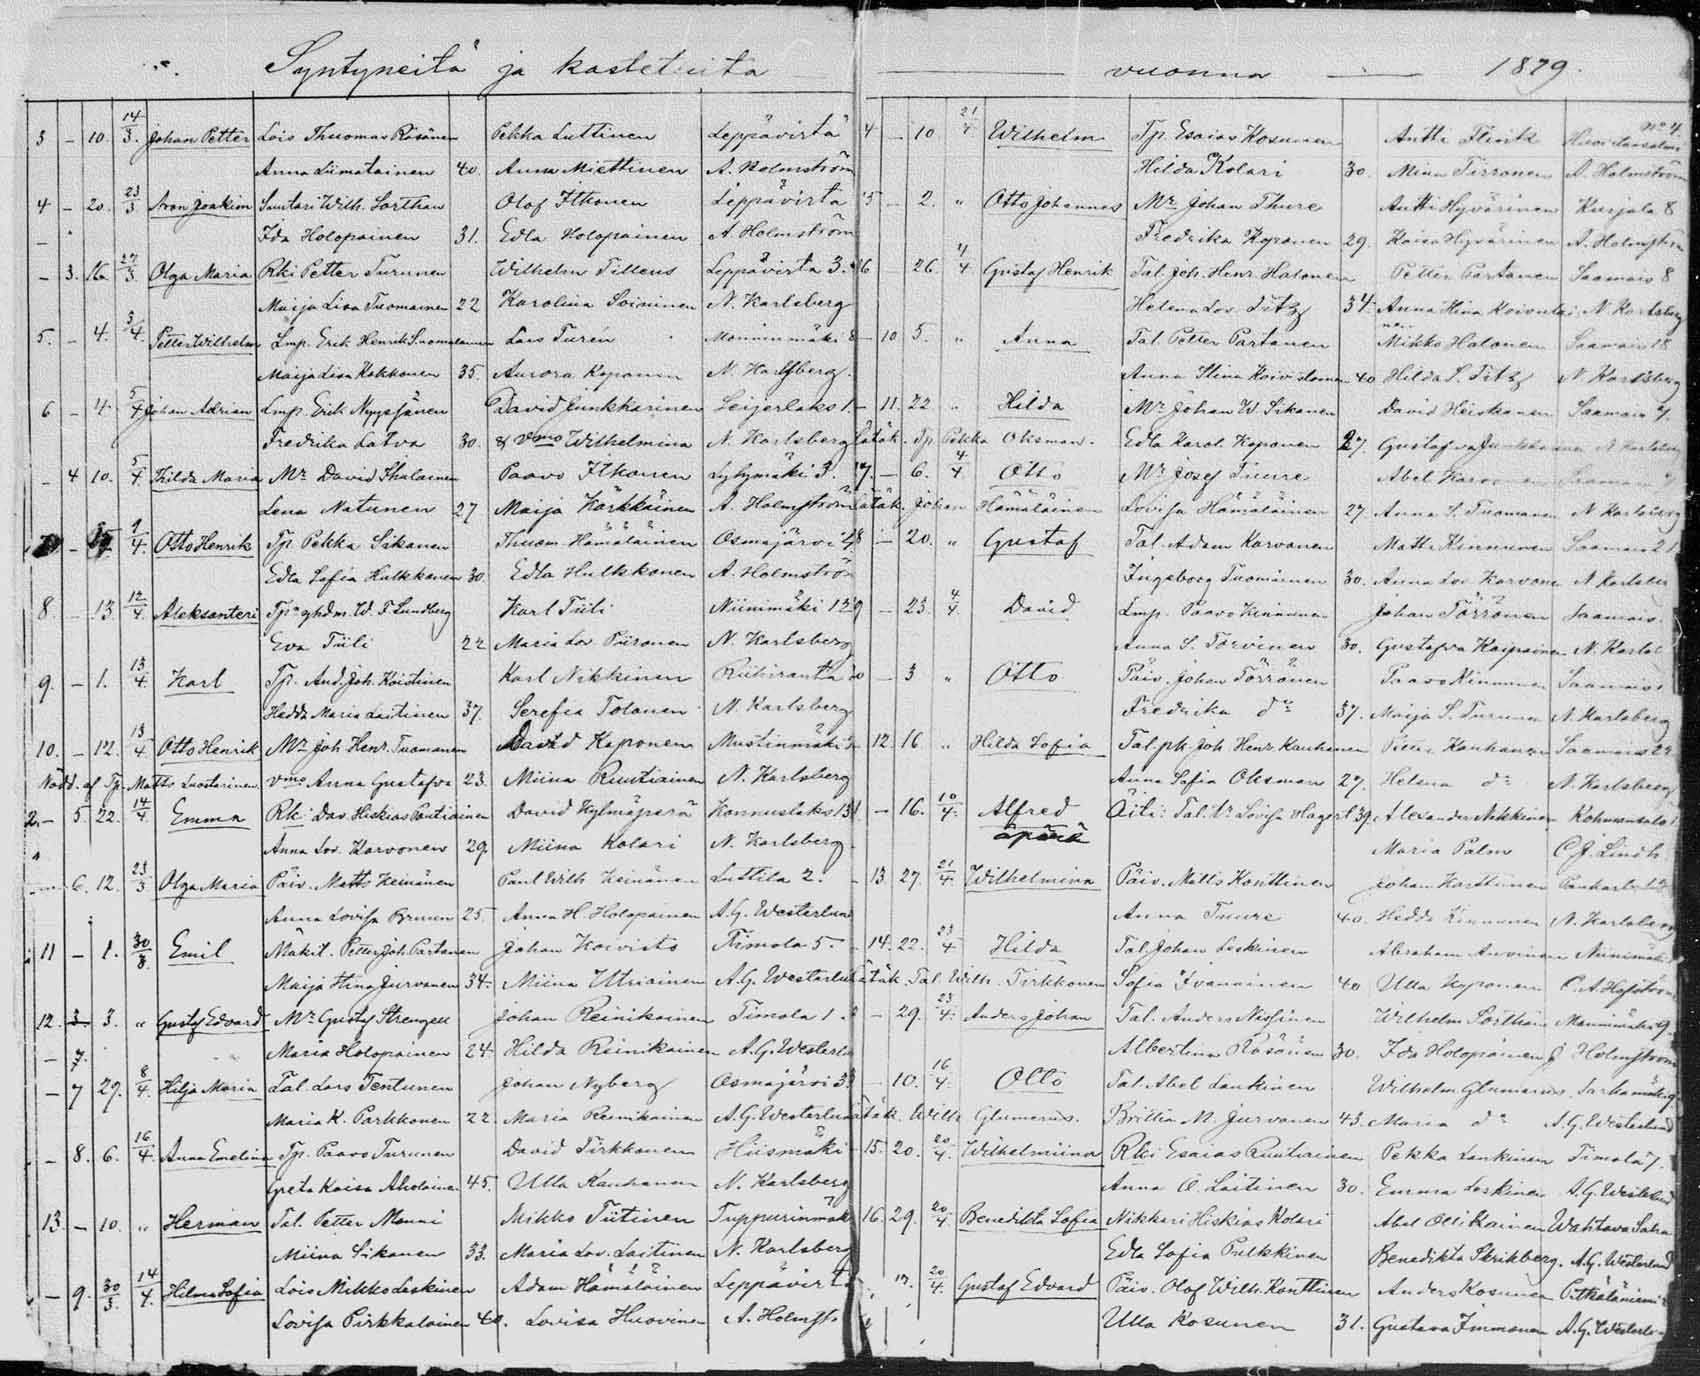 Syntyneitä ja kastetuita
3 - 10. 14/3. Johan Petter Lois Thuomas Räsänen Pekka Luttinen Leppävirta
Anna Liimatainen 40. Anna Miettinen A. Holmström
4 - 20. 23/3 Aron Joakim Suutari Wilh. Sorthan Olof Itkonen Leppävirta
Ida Holopainen 31. Edla Holopainen A. Holmström
- 3. 16. 27/3 Olga Maria Rki Petter Turunen Wilhelm Tilleus Leppävirta 3.
Maija Lisa Tuomainen 22 Karolina Soininen N. Karlsberg
5. - 4. 3/4. Petter Wilhelm Lmp. Erik Henrik Suomalainen Lars Turén Monninmäki 8
Maija Lisa Kokkonen 35. Aurora Koponen N. Karlsberg.
6 - 4. 5/4 Johan Adrian Lmp. Erik Nyyssönen David Junkkarinen Leijerlaks 1.
Fredrika Latva 30. & vmo Wilhelmina N. Karlsberg
- 4 10. 5/4. Hilda Maria Mr David Ihalainen Paavo Itkonen Lyhymäki 3.
Lena Natunen 27 Maija Kärkkäinen A. Holmström
7 - 9/4. Otto Henrik Tp Pekka Sikanen Thuom. Hämäläinen Osmajärvi
Edla Sofia Hulkkonen 30. Edla Hulkkonen A. Holmströ
8. - 13. 12/4 Aleksanteri W. F. Lundberg Karl Tiili Niinimäki 12
Eva Tiili 22 Maria Lov. Piironen N. Karlsberg
9. - 1. 13/4. Karl Tp. And. Joh. Koistinen Karl Nikkinen Riihiranta
Hedda Maria Laitinen 37. Serefia Tolanen N. Karlsberg
10. - 12. 13/4 Otto Henrik Mr Joh. Henr. Tuomainen David Koponen Mustinmäki
Nödd. af Tp. Matts Luostarinen vmo Anna Gustafva 23. Miina Ruutiainen N. Karlsberg
2. - 5. 22. 14/4. Emma Rki Dav. Hiskias Pentiäinen David Kylmäperä Konnuslaks 13
Anna Lov. Karvonen 29. Miina Kolari N. Karlsberg.
6. 12. 23/3 Olga Maria Päiv. Matts Keinänen Paul Wilh Keinänen Luttila 2.
Anna Lovisa Bruun 25 Anna H. Holopainen A. G. Westerlun
11 - 1. 30/3. Emil Mäkit. Petter Joh. Partanen Johan Koivisto Timola 5.
Maija Stina Jurvanen 34. Miina Utriainen A. G. Westerlu
12. 3. 3. " Gustaf Edvard Mr Gustaf Strengell Johan Reinikainen Timola 1.
Maria Holopainen 24. Hilda Reinikainen A. G. Westerlu
- 7 27. 8/4. Hilja Maria Tal. Lars Tentunen Johan Nyberg Osmajärvi 3
Maria K. Parkkonen 22. Maria Reinikainen A. G. Westerlun
- 8. 6. 16/4. Anna Emelina Tp. Paavo Turunen David Tirkkonen Hiismäki
Greta Kaisa Aholainen 45. Ulla Kauhanen N. Karlsberg
13. - 10. " Herman Tal. Petter Monni Mikko Tiitinen Tuppurinmäk
Miina Sikanen 33. Maria Lov. Laitinen N. Karlsberg
- 9. 30/3. 14/4. Hilma Sofia Lois Mikko Leskinen Adam Hämäläinen Leppävirta
Lovisa Pirkkalainen 40. Lovisa Huovinen A. Holmst
vuonna 1879.
No 4.
4 - 10. 21/4 Wilhelm Tp. Esaias Kosunen Antti
Hilda Kolari 30. Miina Tirronen A. Holmström
5 - 2. " Otto Johannes Mr Johan Thure Antti Hyvärinen Kurjala 8
Fredrika Koponen 29. Kaisa Hyvärinen A. Holmström
6 26. 4/4 Gustaf Henrik Tal. Joh. Henr. Halonen Petter Partanen Saamais 8
Helena Lov. Titz 34. Anna Stina Koivula N. Karlsberg
- 10 5. " Anna Tal. Petter Partanen Mikko Halonen Saamais 18
Anna Stina Koivistoinen 40 Hilda S. Titz N. Karlsberg
- 11. 22 " Hilda Mr Johan W. Sikanen David Heiskanen Saamais
Lätäk. Tp Pekka Oksman. Edla Karol. Koponen 27. Gustafva N. Karlsberg
7. - 6. 4/4 Otto Mr Josef Tuure Abel Karvonen Saamais
Lätäk. Johan Hämäläinen Lovisa Hämäläinen 27. Anna S. Tuomainen N. Karlsberg
8 - 20. " Gustaf Tal. Adam Karvonen Matti Kinnunen Saamais 21
Ingeborg Tuomainen 30. Anna Lov. Karvone N. Karlsber
9 - 23. 4/4. David Lmp. Paavo Kinnunen Johan Törrönen Saamais
Anna S. Torvinen 30. Gustafva Karpainen N. Karlsb
- 3 " Otto Päiv. Johan Törrönen Paavo Kinnunen Saamais
Fredrika do 37. Maija S. Turunen N. Karlsberg
12. 16. " Hilda Sofia Tal. ph. Joh. Henr. Kauhanen Petter Kauhanen Saamais 22
Anna Sofia Oksman 27. Helena do N. Karlsberg
- 16. 10/4. Alfred Äiti: Tal. Tr Lovisa Hagert 39. Alexander Nikkinen Kohmansalo
äpärä Maria Palm C. J. Lindh.
- 13. 27. 21/4. Wilhelmina Päiv. Matts Konttinen Johan Karttunen
Anna Tuure 40. Hedda Kinnunen N. Karlsberg
- 14. 22. 23/4 Hilda Tal Johan Leskinen Abraham Auvinen Niinimäki
Lätäk. Tal. Wilh. Tirkkonen Sofia Ivanainen 40 Ulla Koponen C. A. Hofström
- 29. 23/4. Anders Johan Tal. Anders Nissinen Wilhelm Sorthan Manninmäki 9.
Albertina Räsänen 30. Ida Holopainen J Holmström
- 10. 16/4. Otto Tal. Abel Lankinen Wilhelm Glumerus Sarkamäki 9.
Lätäk. Wilh Glumerus. Britta M. Jurvanen 43. Maria do A. G. Westerlund
- 15. 20. 20/4. Wilhelmiina Rki Esaias Ruutiainen Pekka Lankinen Timola 7.
Anna E. Laitinen 30. Emma Leskinen A. G. Westerlund
16. 29. 20/4. Benedikta Sofia Nikkari Hiskias Kolari Abel Ollikainen
Edla Sofia Pulkkinen Benedikta Skrikberg. A. G. Westerlund
17. 20/4. Gustaf Edvard Päiv. Olof Wilh. Konttinen Anders Kosunen Pitkälänniemi
Ulla Kosunen 31. Gustava Immonen A. G. Westerlu